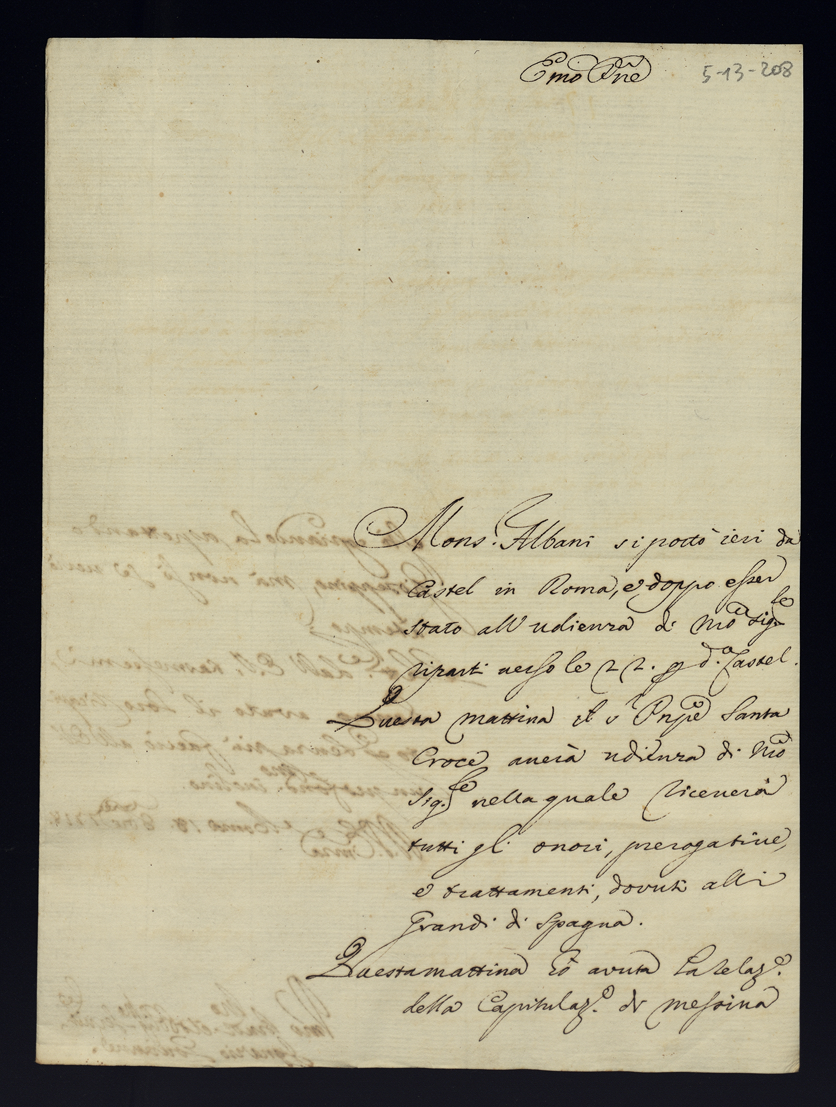 Emo Pñe
5-13-208
Mons.r Albani si portò ieri da
Castel in Roma, e doppo esser
stato all'udienza di Nrõ Sig.re
ripartì verso le 22. p d.o Castel.
Questa mattina il s.r Pñpe Santa
Croce averà udienza di Nrõ
Sig.re nella quale riceverà
tutti gl'onori, prerogative,
e trattamenti, dovuti alli
Grandi di Spagna.
Questa mattina hò avuta la relaz.e
della Capitulaz.e di Messina